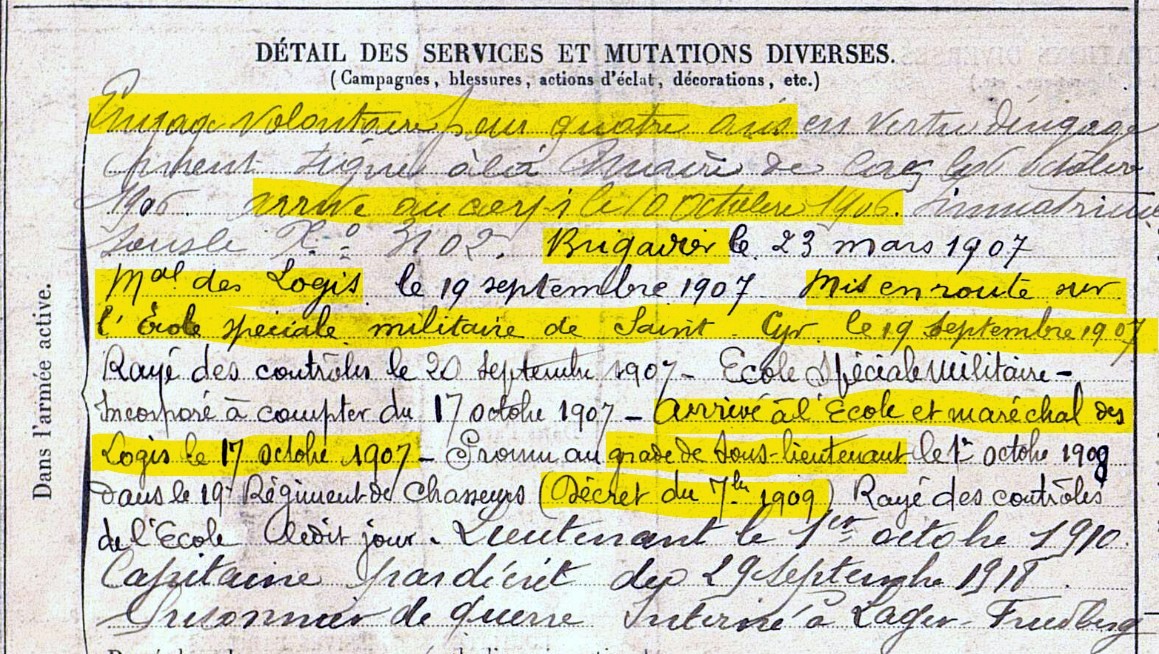 DÉTAIL DES SERVICES ET MUTATIONS DIVERSES.
(Campagnes, blessures, actions d'éclat, décorations, etc.)
Dans l'armée active.
Engagé volontaire pour quatre ans en vertu d'engage
ment signé à la Mairie de le 6 octobre
1906. arrivé au corps le 10 Octobre 1906. Immatriculé
sous le N.º 3102. Brigadier le 23 mars 1907
Mal des Logis le 19 septembre 1907 Mis en route sur
l'École spéciale militaire de Saint Cyr le 19 septembre 1907
Rayé des contrôles le 20 septembre 1907 - Ecole Spéciale Militaire -
Incorporé à compter du 17 octobre 1907 - Arrivé à l'École et maréchal des
Logis le 17 octobre 1907 - Promu au grade de Sous-lieutenant le 1er octobre 1909
dans le 19e Régiment de Chasseurs (Décret du 7bre 1909) Rayé des contrôles
de l'École ledit jour. Lieutenant le 1er octobre 1910.
Capitaine par décrèt du 29 septembre 1918.
Prisonnier de guerre Interné à Lager-Friedberg